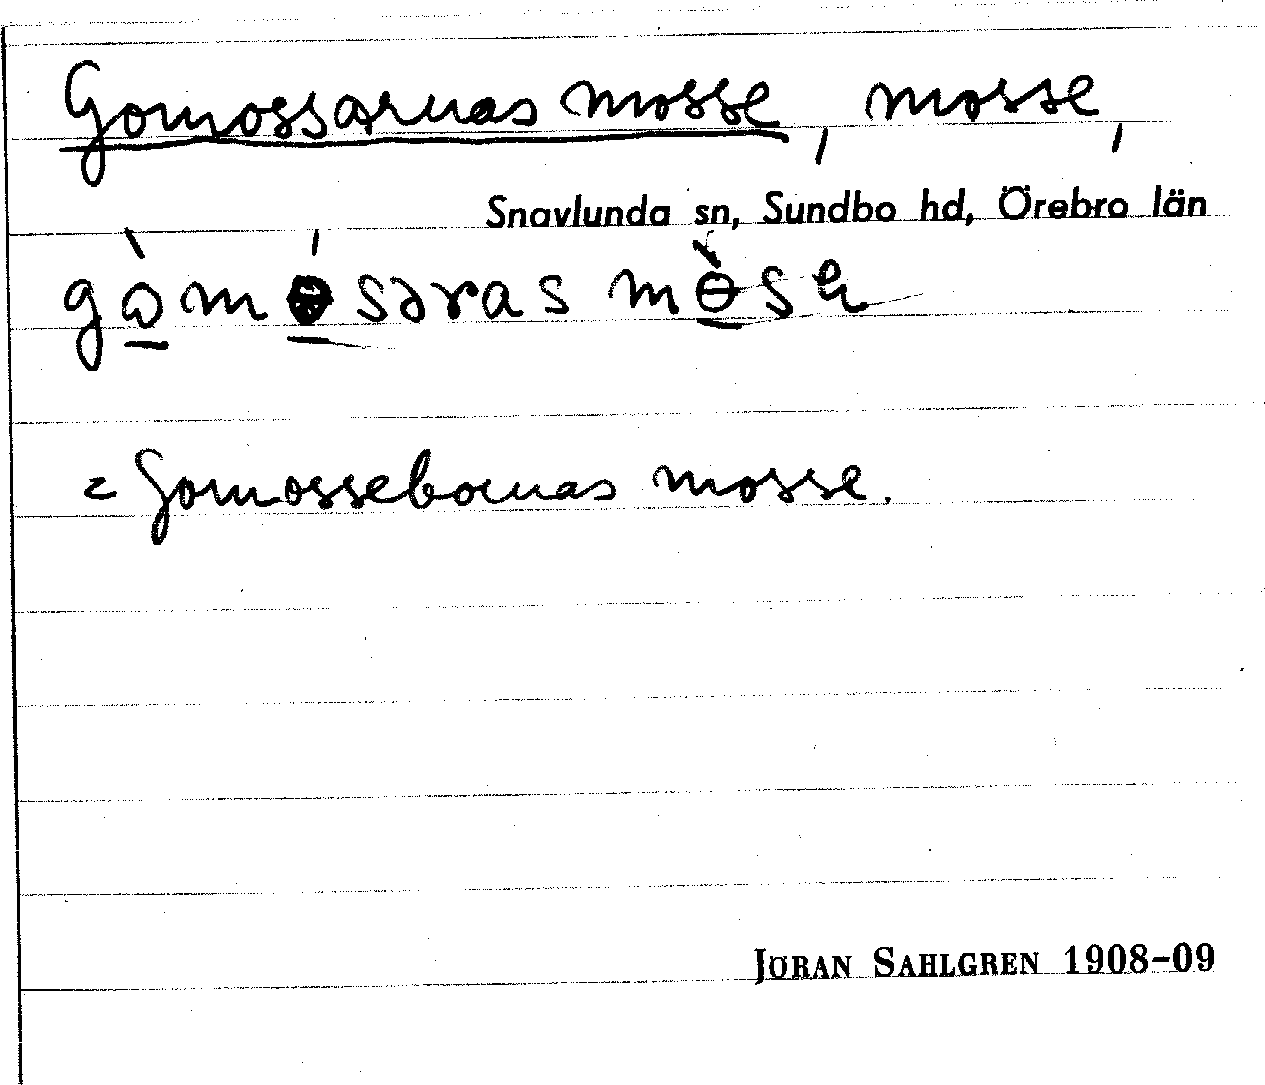 Gomossarnas mosse, mosse,
Snavlunda sn, Sundbo hd, Örebro län
gòmósəras mɵ̀sə
= Gomossebornas mosse.
JÖRAN SAHLGREN 1908–09